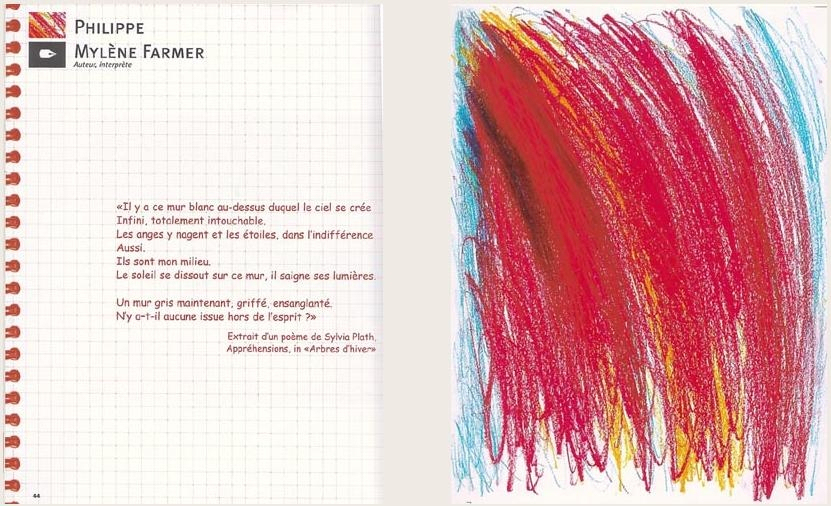 PHILIPPE
MYLÈNE FARMER
Auteur, interprète
«Il y a ce mur blanc au-dessus duquel le ciel se crée
Infini, totalement intouchable.
Les anges y nagent et les étoiles, dans l'indifférence
Aussi.
Ils sont mon milieu.
Le soleil se dissout sur ce mur, il saigne ses lumières.
Un mur gris maintenant, griffé, ensanglanté.
N'y a-t-il aucune issue hors de l'esprit ?»
Extrait d'un poème de Sylvia Plath,
Appréhensions, in «Arbres d'hiver»
44